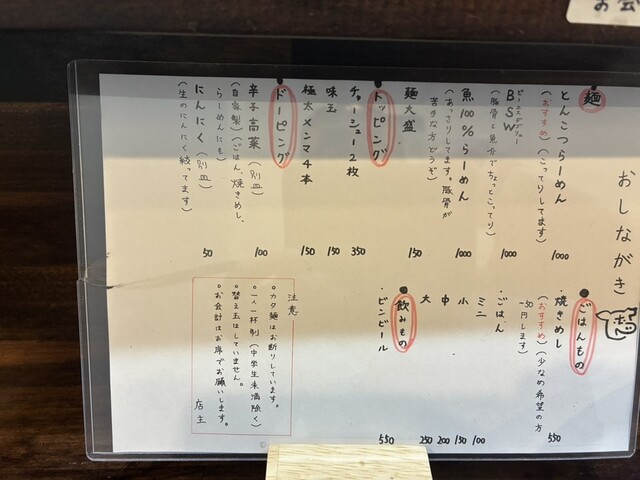 お会
おしながき
麺
とんこつらーめん 1000
(おすすめ)(こってりしてます)
BSW 1000
(豚骨と魚介でちょっとこってり)
魚100%らーめん 1000
(あっさりしてます。豚骨が
苦手な方どうぞ)
麺大盛 150
トッピング
チャーシュー2枚 350
味玉 150
極太メンマ4本 150
ドーピング
辛子高菜(別皿) 100
(自家製)(ごはん、焼きめし、
らーめんにも)
にんにく(別皿) 50
(生のにんにく絞ってます)
ごはんもの
・焼きめし 550
(おすすめ)(少なめ希望の方
-50円します)
・ごはん
ミニ 100
小 150
中 200
大 250
飲みもの
・ビンビール 550
注意
○カタ麺はお断りしています。
○一人一杯制(中学生未満除く)
○替え玉はしていません。
○お会計はお席でお願いします。
店主